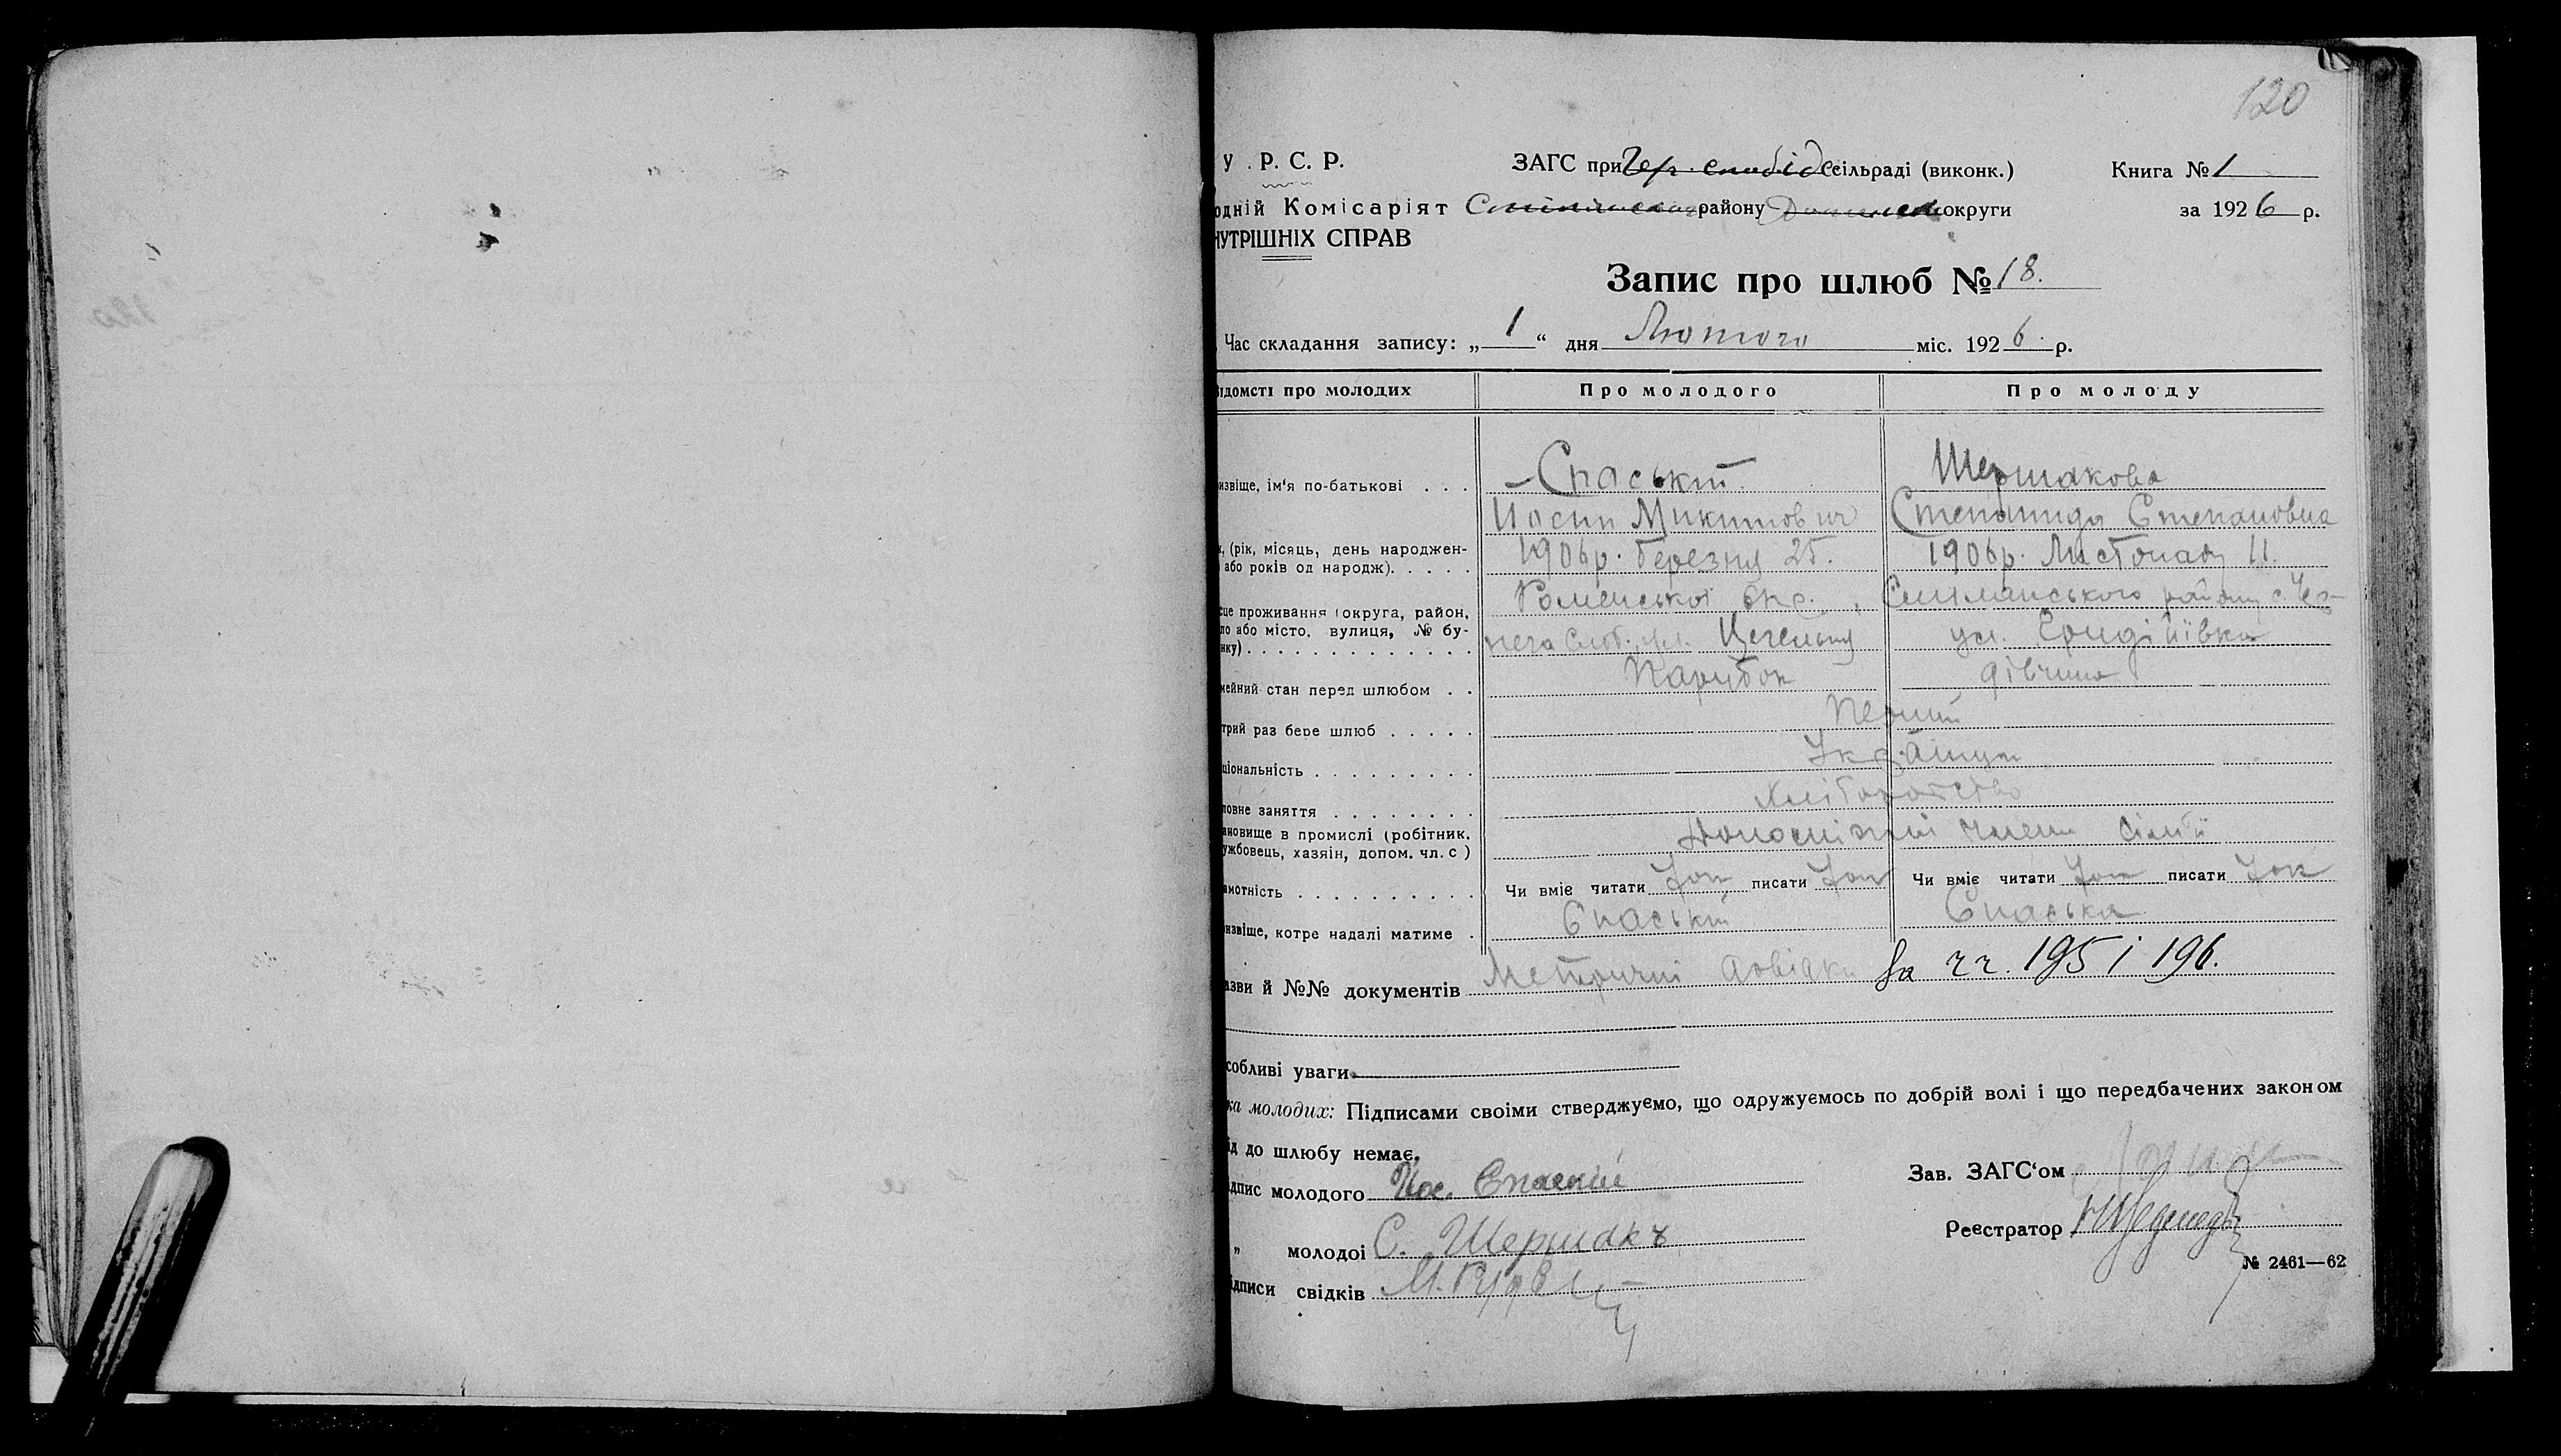 120
У.Р.С.Р. ЗАГС при Чер. слобідс сільраді (виконк.) Книга № 1
одній Комісаріят району округи за 1926 р.
НУТРІШНІХ СПРАВ
Запис про шлюб № 18.
Час складання запису: „ 1 “ дня Лютого міс. 1926 р.
ідомсті про молодих Про молодого Про молоду
ізвіще, ім‘я по-батькові . . . Спаський Шершакова
Иосип Микитович Степанида Степановна
(рік, місяць, день народжен- 1906р. березня 25. 1906р. Листопаду 11.
або років од народж). . . . .
сце проживання (округа, район, Роменської окр. району с. Чер-
ло або місто, вулиця, № бу- Слоб. Цегельня ул.
нку) . . . . . . . . . . . . .
мейний стан перед шлюбом . . Парубок дівчина
трий раз бере шлюб . . . . . Перший
ціональність . . . . . . . . . Українці
ловне заняття . . . . . . . . Хліборобство
ановище в промислі (робітник, Допоміжний член сімьї
ужбовець, хазяін, допом. чл. с )
амотність . . . . . . . . . . Чи вміє читати писати Чи вміє читати писати
ізвіще, котре надалі матиме . Спаський Спаська
азви й №№ документів Метричні довідки За чч. 195 і 196.
собливі уваги
ка молодих: Підписами своіми стверджуємо, що одружуємось по добрій волі і що передбачених законом
ід до шлюбу немає.
Зав. ЗАГС‘ом
ідпис молодого Иос. Спаский
Реєстратор
„ молодоі С. Шершакъ
№ 2461—62
ідписи свідків М.